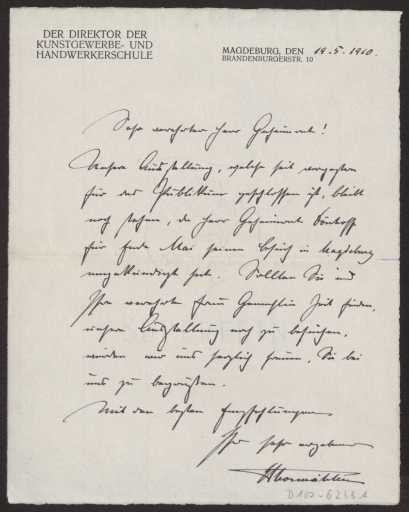 DER DIREKTOR DER
KUNSTGEWERBE- UND
HANDWERKERSCHULE
MAGDEBURG, DEN 19.5.1910.
BRANDENBURGERSTR. 10
Sehr verehrter Herr Geheimrat!
Unsere Ausstellung, welche seit vorgestern
für das Publikum geschlossen ist, bleibt
noch stehen, da Herr Geheimrat Dönhoff
für Ende Mai seinen Besuch in Magdeburg
angekündigt hat. Sollten Sie und
Ihre verehrte Frau Gemahlin Zeit finden,
unsere Ausstellung noch zu besuchen,
würden wir uns herzlich freuen, Sie bei
uns zu begrüßen.
Mit den besten Empfehlungen
Ihr sehr ergebener
Thormählen
D 102-6248.1